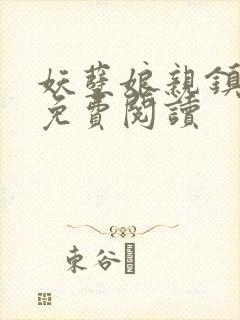 妖孽娘親鎮
免費閱讀
東谷